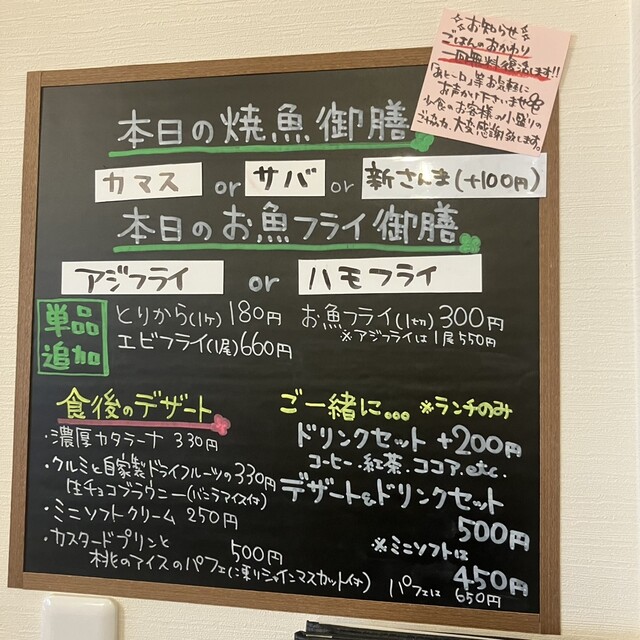 お知らせ
ごはんのおかわり
一回無料復活します!!
お気軽に
お声かけ下さいませ
少食のお客様の小盛りの
ご協力、大変感謝致します。
本日の焼魚御膳
カマス or サバ or 新さんま(+100円)
本日のお魚フライ御膳
アジフライ or ハモフライ
単品
追加
とりから(1ヶ) 180円
エビフライ(1尾) 660円
お魚フライ(1切) 300円
※アジフライは1尾550円
食後のデザート
・濃厚カタラーナ 330円
・クルミと自家製ドライフルーツの 330円
生チョコブラウニー(バニラアイス付)
・ミニソフトクリーム 250円
・カスタードプリンと
桃のアイスのパフェ(凍りシャインマスカット付) 500円
ご一緒に... ※ランチのみ
ドリンクセット +200円
コーヒー.紅茶.ココア.etc.
デザート&ドリンクセット
500円
※ミニソフトは
450円
パフェは 650円